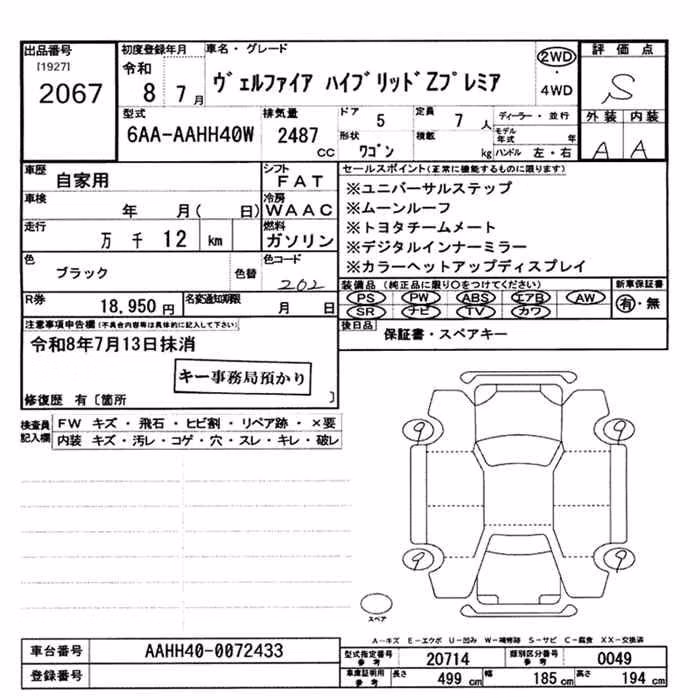 出品番号
[1927]
2067
初度登録年月
令和
8 7 月
車名・グレード
ヴェルファイア ハイブリッドZプレミア
2WD
・
4WD
評価点
S
外装 内装
A A
型式
6AA-AAHH40W
排気量
2487
CC
ドア
5
定員
7 人
ディーラー・並行
形状
ワゴン
積載
kg
モデル年式
年
ハンドル 左・右
車歴
自家用
シフト
FAT
車検
年 月( 日)
冷房
WAAC
走行
万 千 12 km
燃料
ガソリン
色
ブラック
色替
色コード
202
R券
18,950 円
名変通知期限
月 日
セールスポイント(正常に機能するものに限ります)
※ユニバーサルステップ
※ムーンルーフ
※トヨタチームメート
※デジタルインナーミラー
※カラーヘットアップディスプレイ
装備品(純正品に限り〇をつけてください)
PS PW ABS エアB AW
SR ナビ TV カワ
新車保証書
有・無
後日品
保証書・スペアキー
注意事項申告欄(不具合内容等は具体的に記入して下さい)
令和8年7月13日抹消
キー事務局預かり
修復歴 有〔箇所 〕
検査員記入欄
FW キズ・飛石・ヒビ割・リペア跡・×要
内装 キズ・汚レ・コゲ・穴・スレ・キレ・破レ
9 9
9 9
スペア
A-キズ E-エクボ U-凹み W-補修跡 S-サビ C-腐食 XX-交換済
車台番号
AAHH40-0072433
登録番号
型式指定番号
参考
20714
類別区分番号
参考
0049
車庫証明用
参考
長さ 499 cm 幅 185 cm 高さ 194 cm